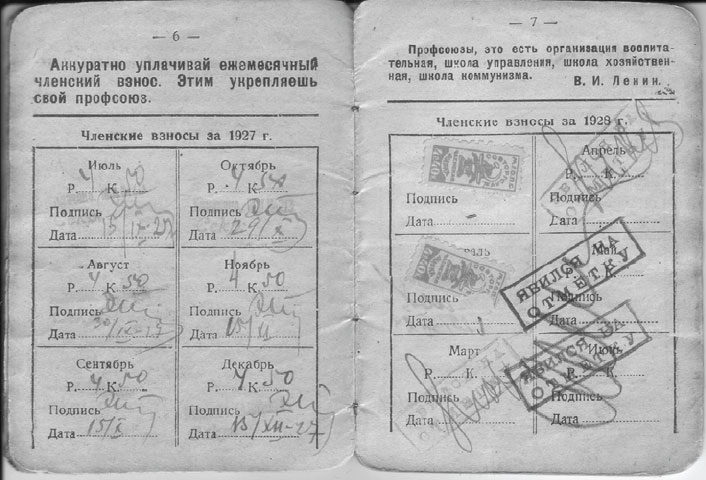 — 6 —
Аккуратно уплачивай ежемесячный
членский взнос. Этим укрепляешь
свой профсоюз.
Членские взносы за 1927 г.
Июль
Р. 4 К. 50
Подпись
Дата 15/IX-27
Октябрь
Р. 4 К. 50
Подпись
Дата 29/X
Август
Р. 4 К. 50
Подпись
Дата 30/IX-27
Ноябрь
Р. 4 К. 50
Подпись
Дата 15/II
Сентябрь
Р. 4 К. 50
Подпись
Дата 15/X
Декабрь
Р. 4 К. 50
Подпись
Дата 15/XII-27
— 7 —
Профсоюзы, это есть организация воспита-
тельная, школа управления, школа хозяйствен-
ная, школа коммунизма.
В. И. Ленин.
Членские взносы за 1928 г.
Подпись
Дата
Апрель
Р. К.
Подпись
Дата
ЯВИЛСЯ НА
ОТМЕТКУ
Подпись
Дата
Май
ЯВИЛСЯ НА
ОТМЕТКУ
Март
Р. К.
Подпись
Дата
Июнь
К.
Подпись
Дата
ЯВИЛСЯ НА
ОТМЕТКУ